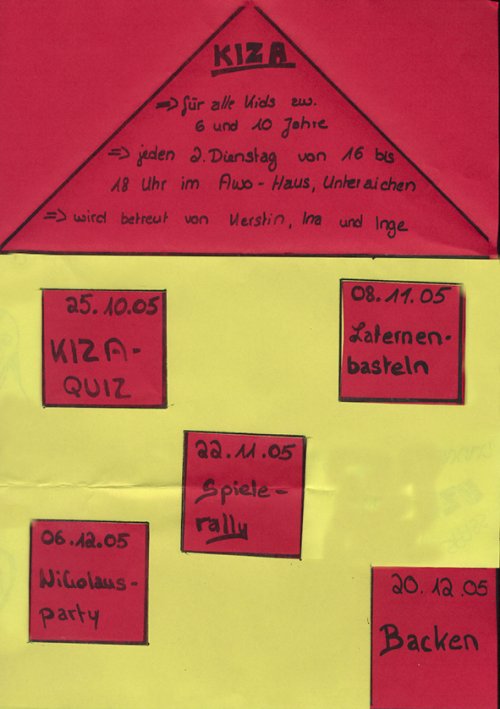 KIZA
=> für alle Kids zw.
6 und 10 Jahre
=> jeden 2. Dienstag von 16 bis
18 Uhr im Awo-Haus, Unteraichen
=> wird betreut von Kerstin, Ina und Inge
25.10.05
KIZA-
QUIZ
08.11.05
Laternen-
basteln
22.11.05
Spiele-
rally
06.12.05
Nikolaus-
party
20.12.05
Backen